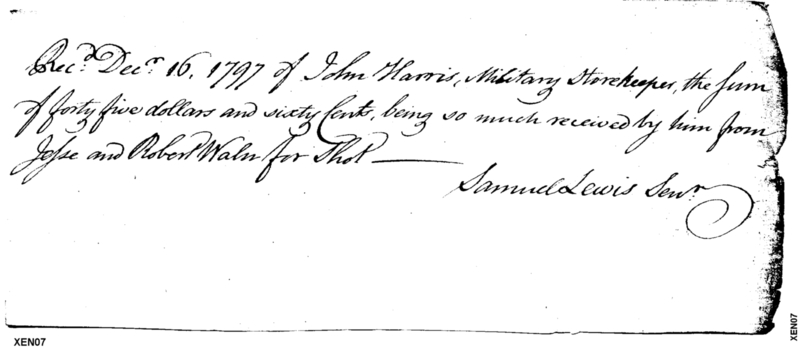 Rec.d Dec.r 16, 1797 of John Harris, Military Storekeeper, the sum
of forty five dollars and sixty Cents, being so much received by him from
Jesse and Robert Waln for Shot —
Samuel Lewis Sen.r
XEN07
XEN07